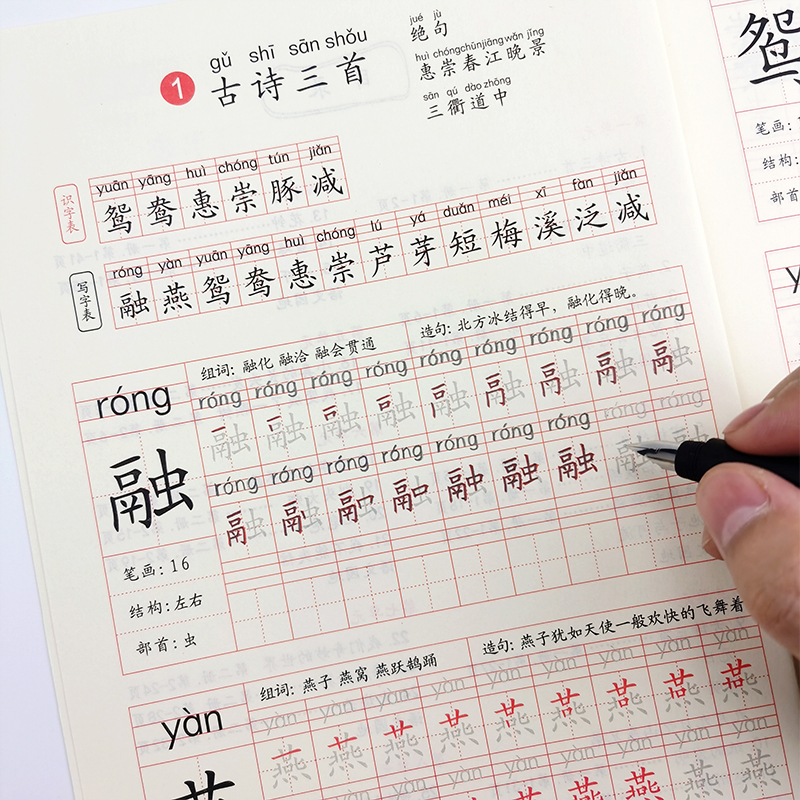 gǔ shī sān shǒu
1 古诗三首
jué jù
绝句
huì chóng chūn jiāng wǎn jǐng
惠崇春江晚景
sān qú dào zhōng
三衢道中
识字表
yuān yāng huì chóng tún jiǎn
鸳鸯惠崇豚减
写字表
róng yàn yuān yāng huì chóng lú yá duǎn méi xī fàn jiǎn
融燕鸳鸯惠崇芦芽短梅溪泛减
róng
组词: 融化 融洽 融会贯通
造句: 北方冰结得早，融化得晚。
róng róng róng róng róng róng róng róng róng
融
róng róng róng róng róng róng róng róng róng
笔画: 16
结构: 左右
部首: 虫
yàn
组词: 燕子 燕窝 燕跃鹄踊
造句: 燕子犹如天使一般欢快的飞舞着
yàn yàn yàn yàn yàn yàn yàn yàn yàn
燕
鸳
笔画:
结构:
部首